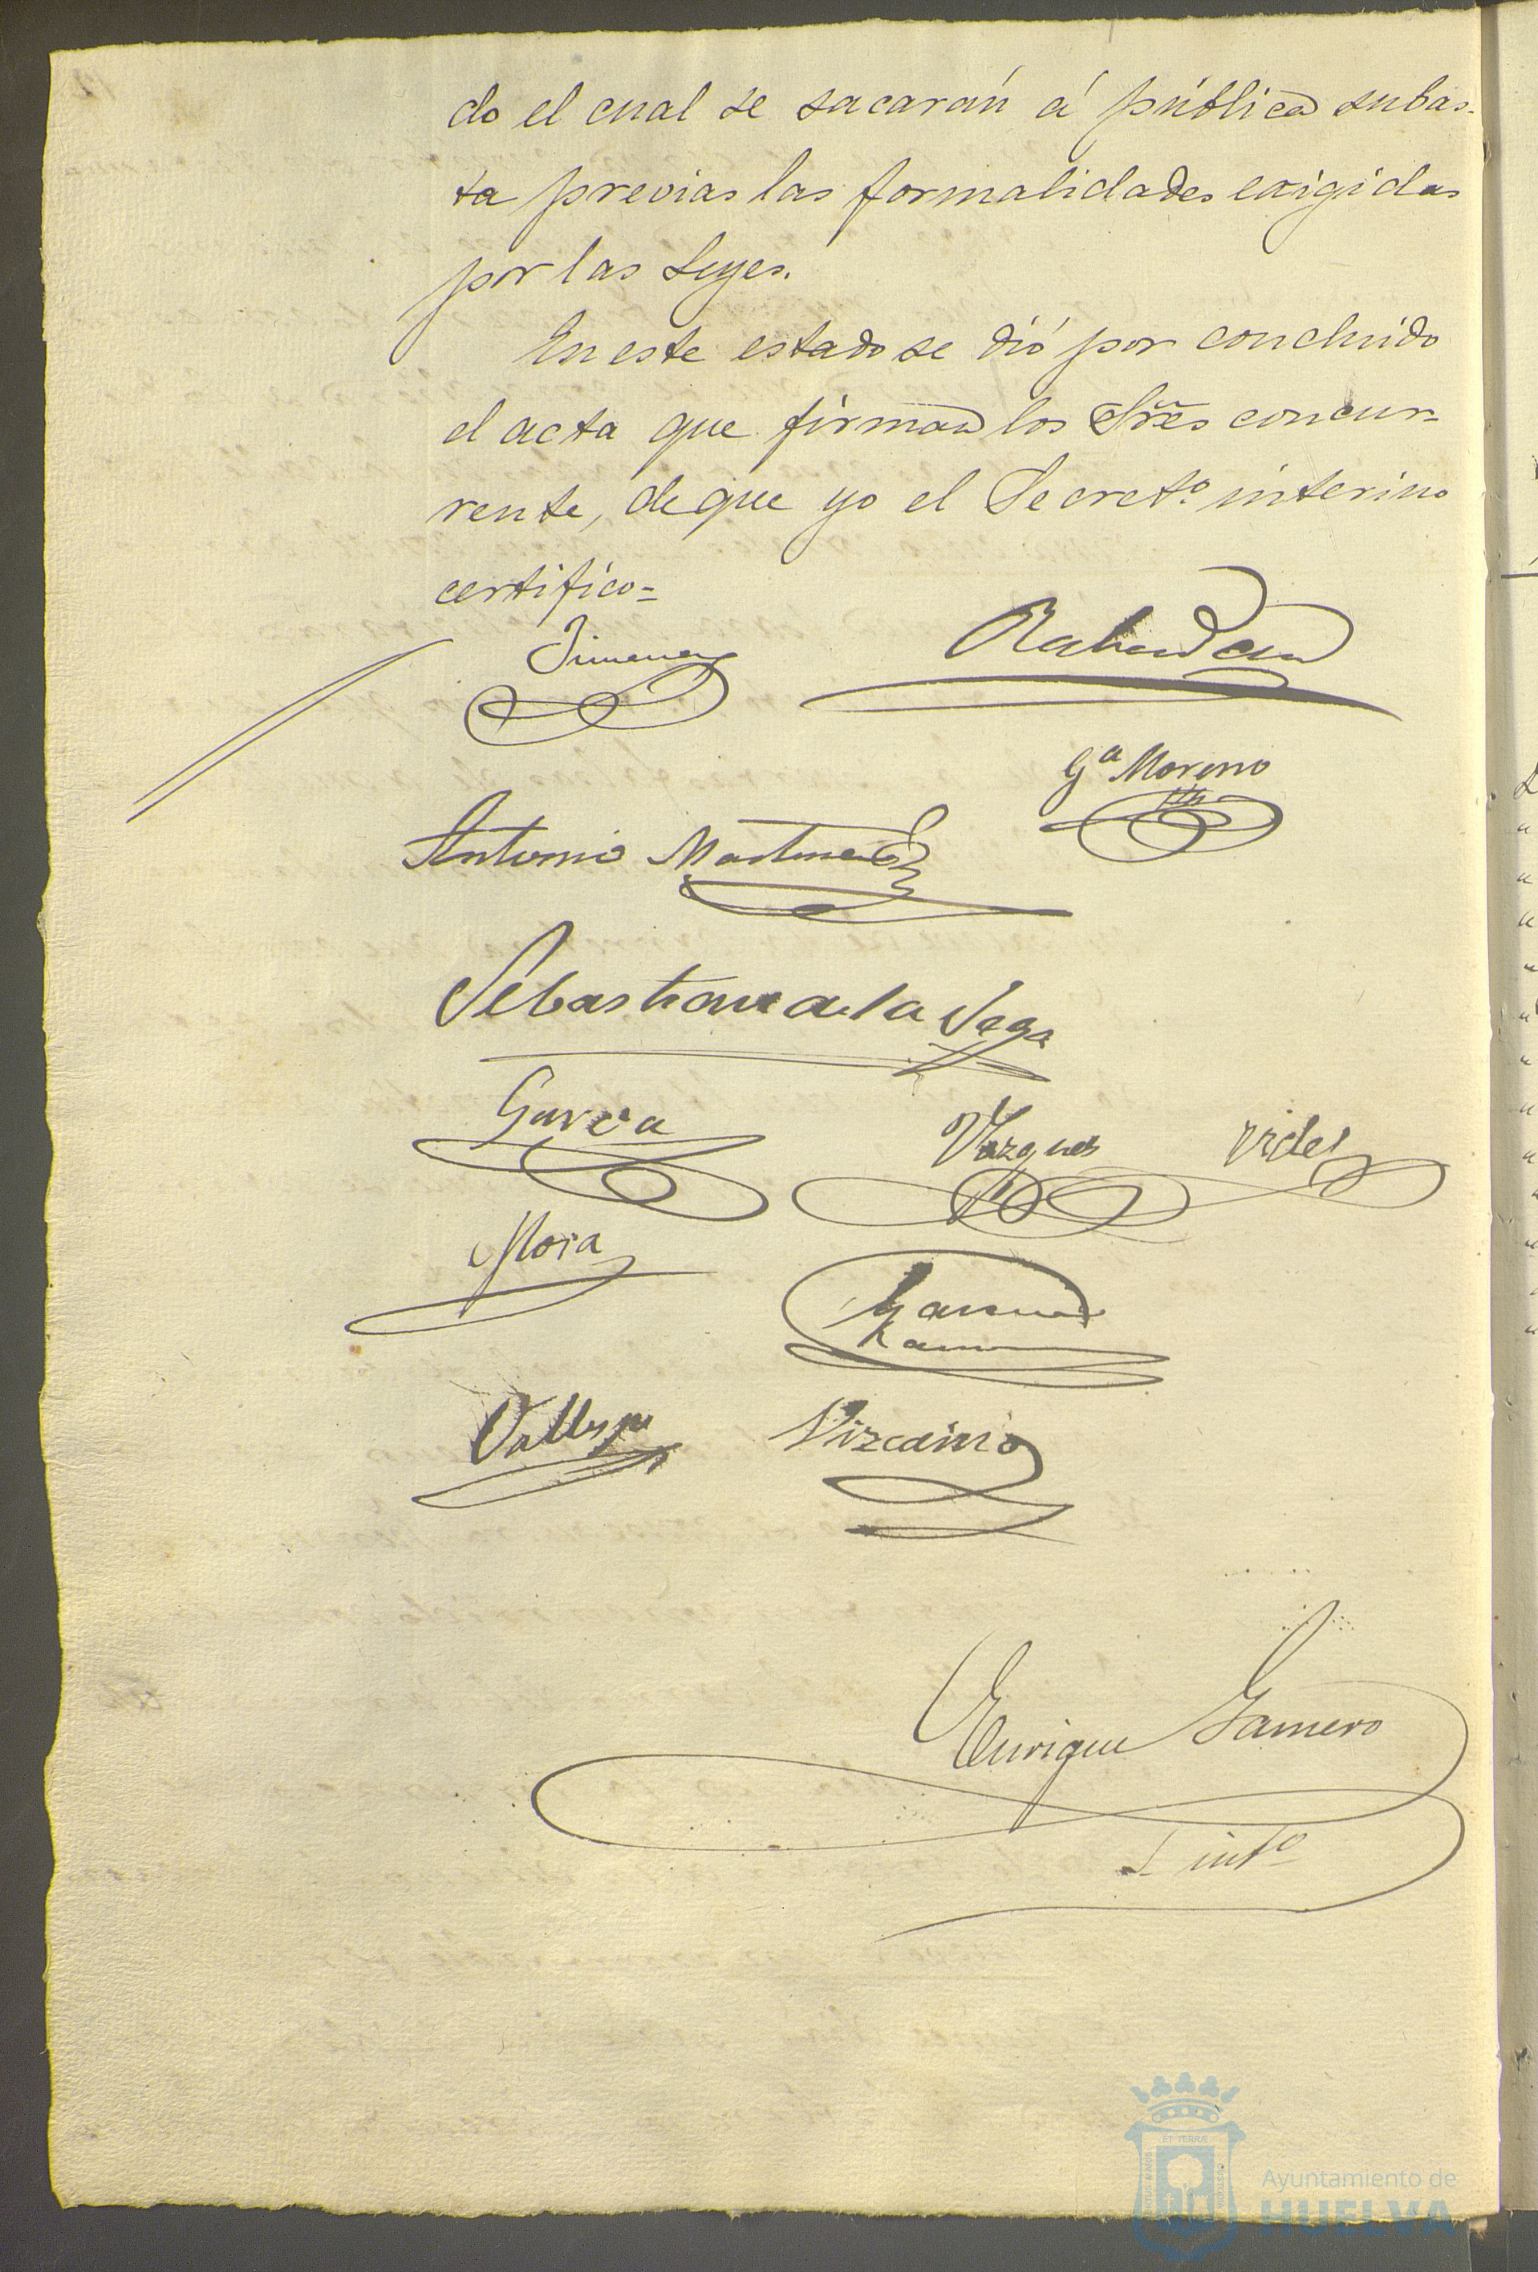 do el cual se sacarán á pública subas-
ta previas las formalidades exigidas
por las Leyes.
En este estado se dió por concluido
el acta que firman los Sres concur-
rente, de que yo el Secretº interino
certifico=
Jimenez
Rabadan
Gª Moreno
Antonio Martinez
Sebastian de la Vega
Garcia
Vazquez
Videl
Mora
Vizcaino
Enrique Gamero
S. intº
Ayuntamiento de
HUELVA